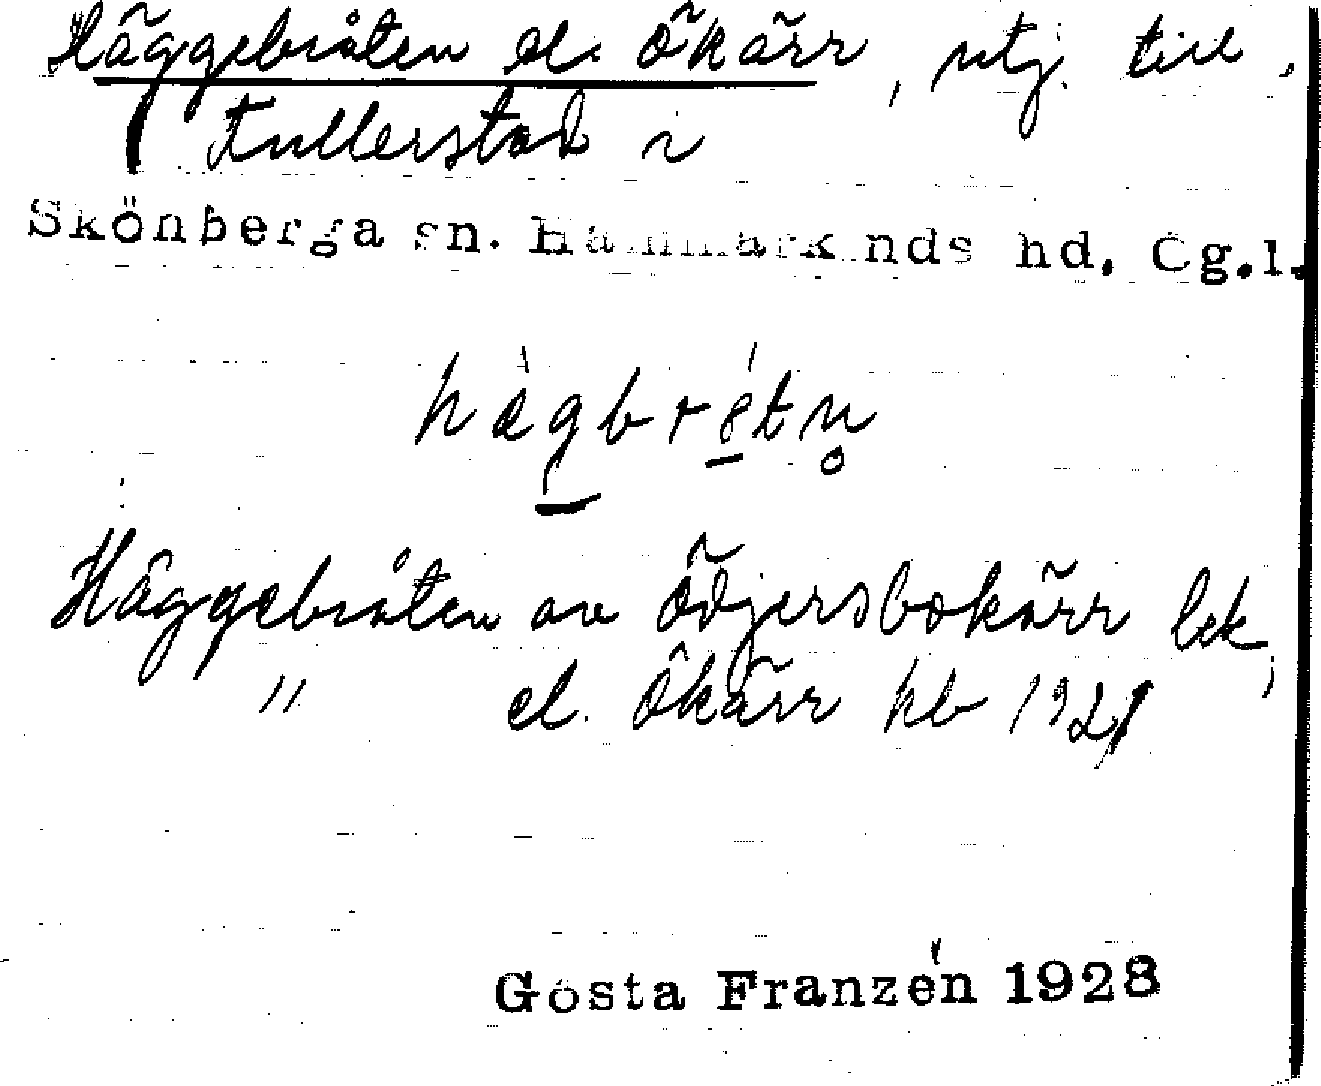 Häggebråten el. Ökärr, utj. till
Fullerstad i
Skönberga sn. Hammarkinds hd. Ög.l.
hægbrǻtn̥
Häggebråten av Ödjersbokärr lsk;
" el. Ökärr kb 1921
Gösta Franzén 1928